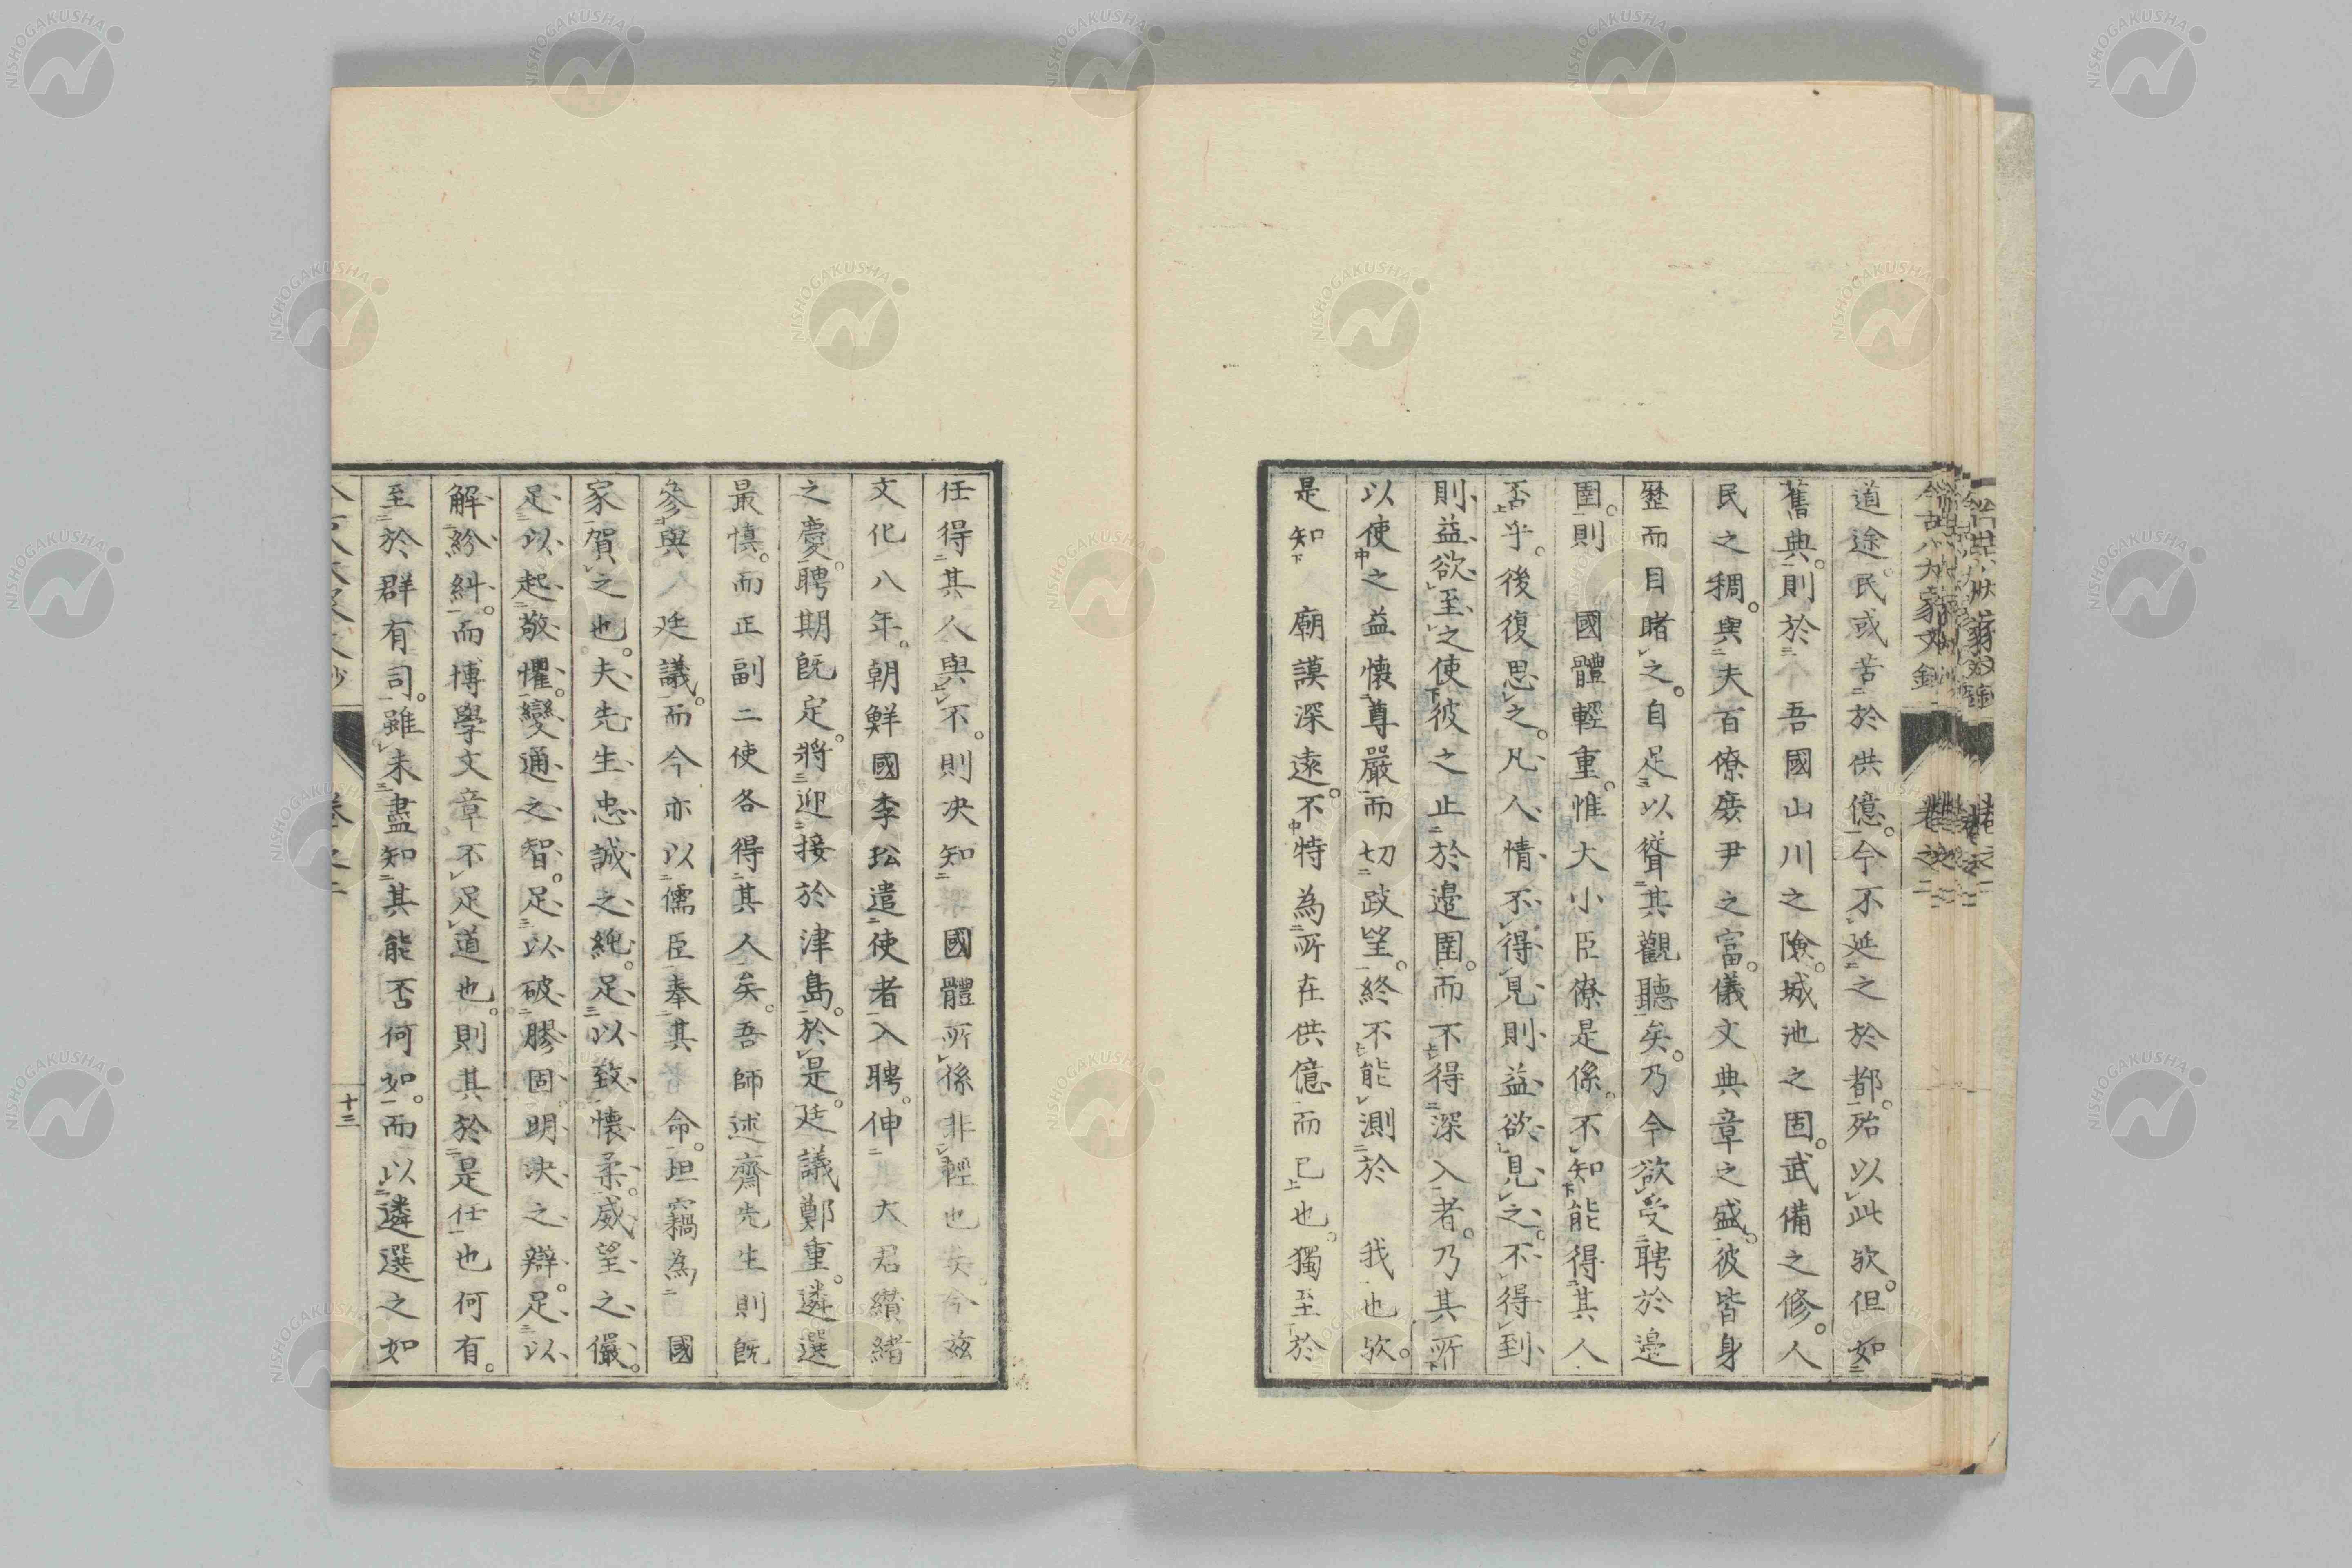 道途。民或苦於供億。今不延之於都。殆以此欤。但如
舊典。則於 吾國山川之險。城池之固。武備之修。人
民之稠。與夫百僚庶尹之富。儀文典章之盛。彼皆身
歷而目睹之。自足以聳其觀聽矣。乃今欲受聘於邊
圉。則 國體輕重。惟大小臣僚是係。不知能得其人
否乎。後復思之。凡人情不得見則益欲見之。不得到
則益欲至之使彼之止於邉圉。而不得深入者。乃其所
以使之益懷尊嚴而切跂望。終不能測於 我也欤。
是知 廟謨深遠。不特為所在供億而已也。獨至於
任得其人與不。則决知 國體所係非輕也矣。今玆
文化八年。朝鮮國李玜遣使者入聘。伸 大君纘緒
之慶。聘期既定。將迎接於津島。於是廷議鄭重。遴選
最慎。而正副二使各得其人矣。吾師述齋先生則既
參與 廷議。而今亦以儒臣奉其 命。坦竊為 國
家賀之也。夫先生忠誠之純。足以致懷柔。威望之儼。
足以起敬懼。變通之智。足以破膠固明决之辯。足以
解紛糾。而博學文章不足道也。則其於是任也何有。
至於群有司。雖未盡知其能否何如。而以遴選之如
十三
NISHOGAKUSHA